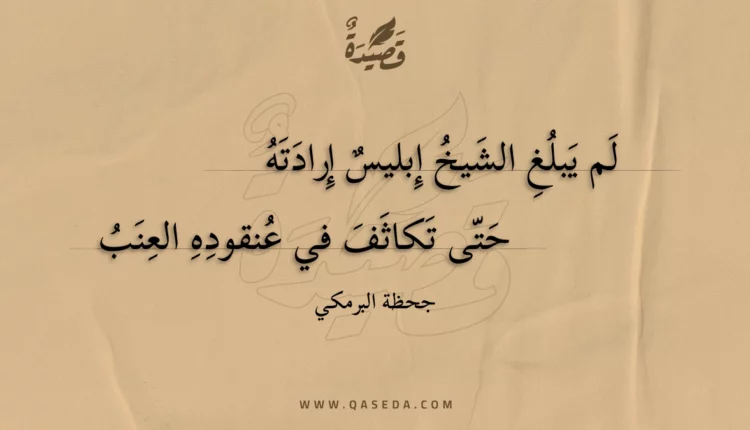 قَصِيْدَةٌ
لَم يَبلُغِ الشَيخُ إِبليسٌ إِرادَتَهُ
حَتّى تَكاثَفَ في عُنقودِهِ العِنَبُ
جحظة البرمكي
WWW.QASEDA.COM